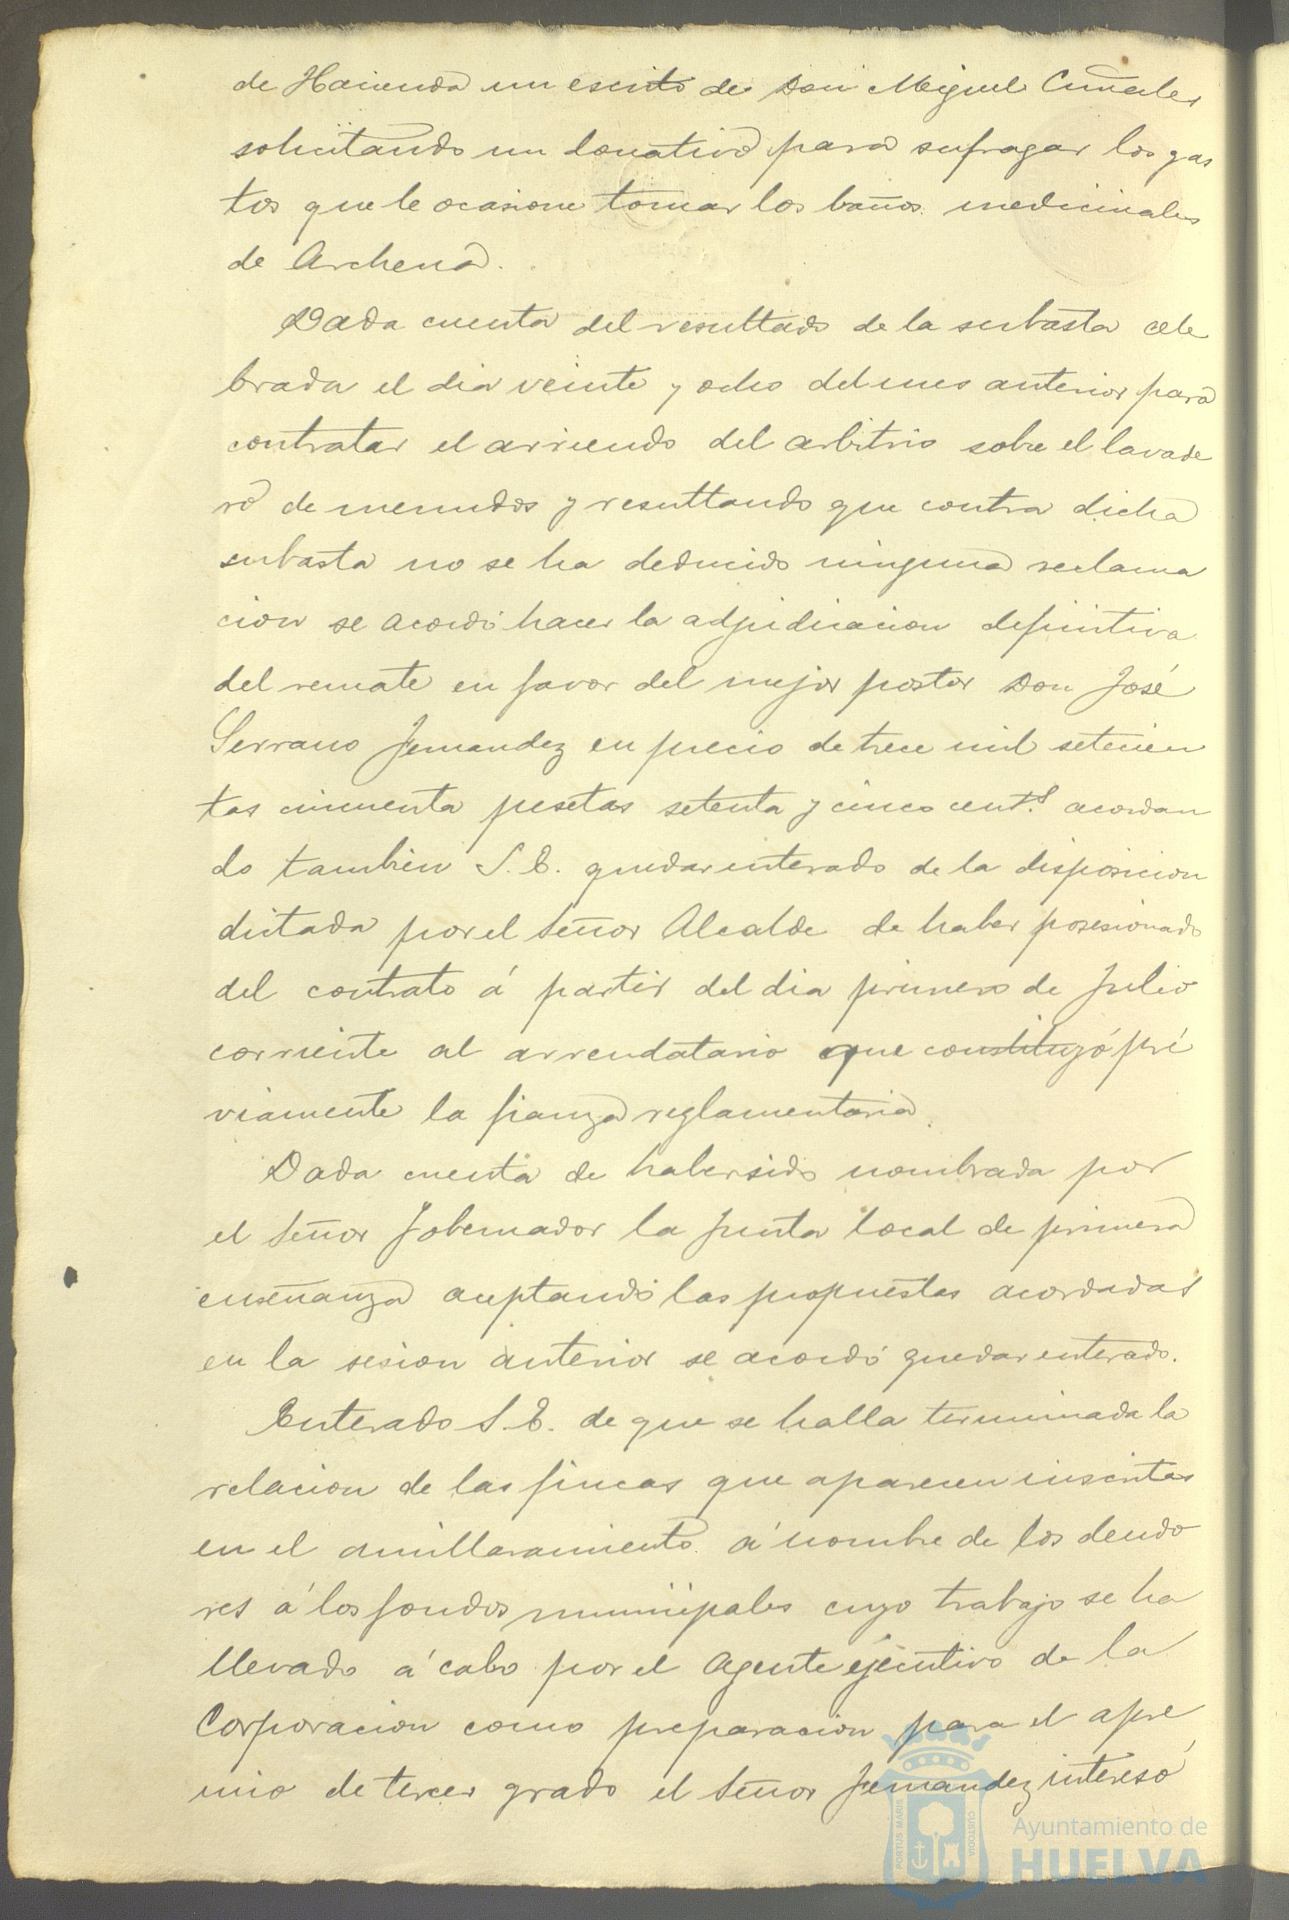 de Hacienda un escrito de Don Miguel Cumeles
solicitando un donativo para sufragar los gas
tos que le ocasione tomar los baños medicinales
de Archena.
Dada cuenta del resultado de la subasta cele
brada el dia veinte y ocho del mes anterior para
contratar el arriendo del arbitrio sobre el lavade
ro de menudos y resultando que contra dicha
subasta no se ha deducido ninguna reclama
cion se acordó hacer la adjudicacion definitiva
del remate en favor del mejor postor Don José
Serrano Fernandez en precio de trece mil setecien
tas cincuenta pesetas setenta y cinco cent.s acordan
do tambien S. E. quedar enterado de la disposicion
dictada por el Señor Alcalde de haber posesionado
del contrato á partir del dia primero de Julio
corriente al arrendatario que constituyó pré
viamente la fianza reglamentaria.
Dada cuenta de haber sido nombrada por
el Señor Gobernador la Junta local de primera
enseñanza aceptando las propuestas acordadas
en la sesion anterior se acordó quedar enterado.
Enterado S. E. de que se halla terminada la
relacion de las fincas que aparecen inscritas
en el amillaramiento á nombre de los deudo
res á los fondos municipales cuyo trabajo se ha
llevado á cabo por el Agente ejecutivo de la
Corporacion como preparacion para el apre
mio de tercer grado el Señor Fernandez interesó
PORTUS MARIS
CUSTODIA
Ayuntamiento de
HUELVA